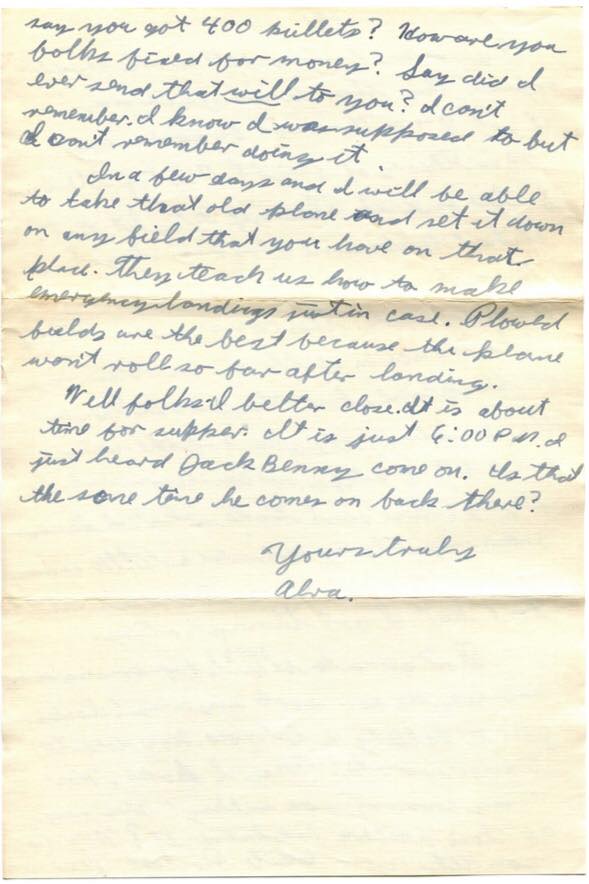 say you got 400 pullets? How are you
folks fixed for money? Say did I
ever send that will to you? I can't
remember. I know I was supposed to but
I can't remember doing it.
In a few days and I will be able
to take that old plane and set it down
on any field that you have on that
place. They teach us how to make
emergency landings just in case. Plowed
fields are the best because the plane
won't roll so far after landing.
Well folks I better close. It is about
time for supper. It is just 6:00 P.M. I
just heard Jack Benny come on. Is that
the same time he comes on back there?
Yours truly
Alva.